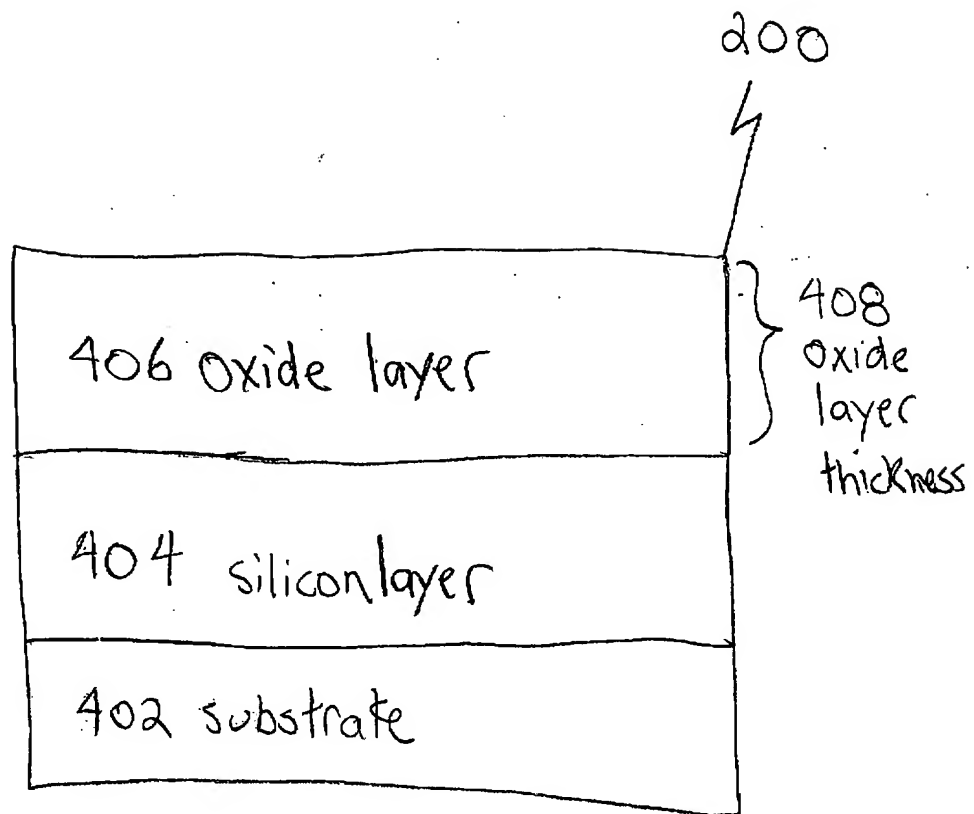 200
406 oxide layer
408
oxide
layer
thickness
404 silicon layer
402 substrate